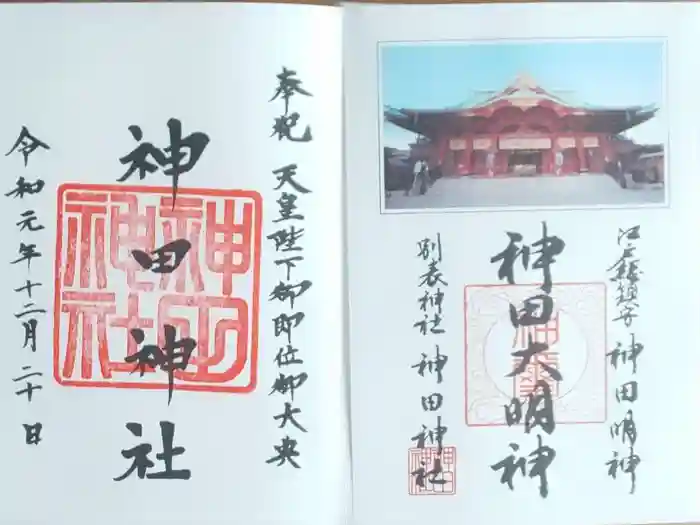 江戸総鎮守 神田明神
神田大明神
別表神社 神田神社
奉祝 天皇陛下御即位御大典
神田神社
令和元年十二月二十日